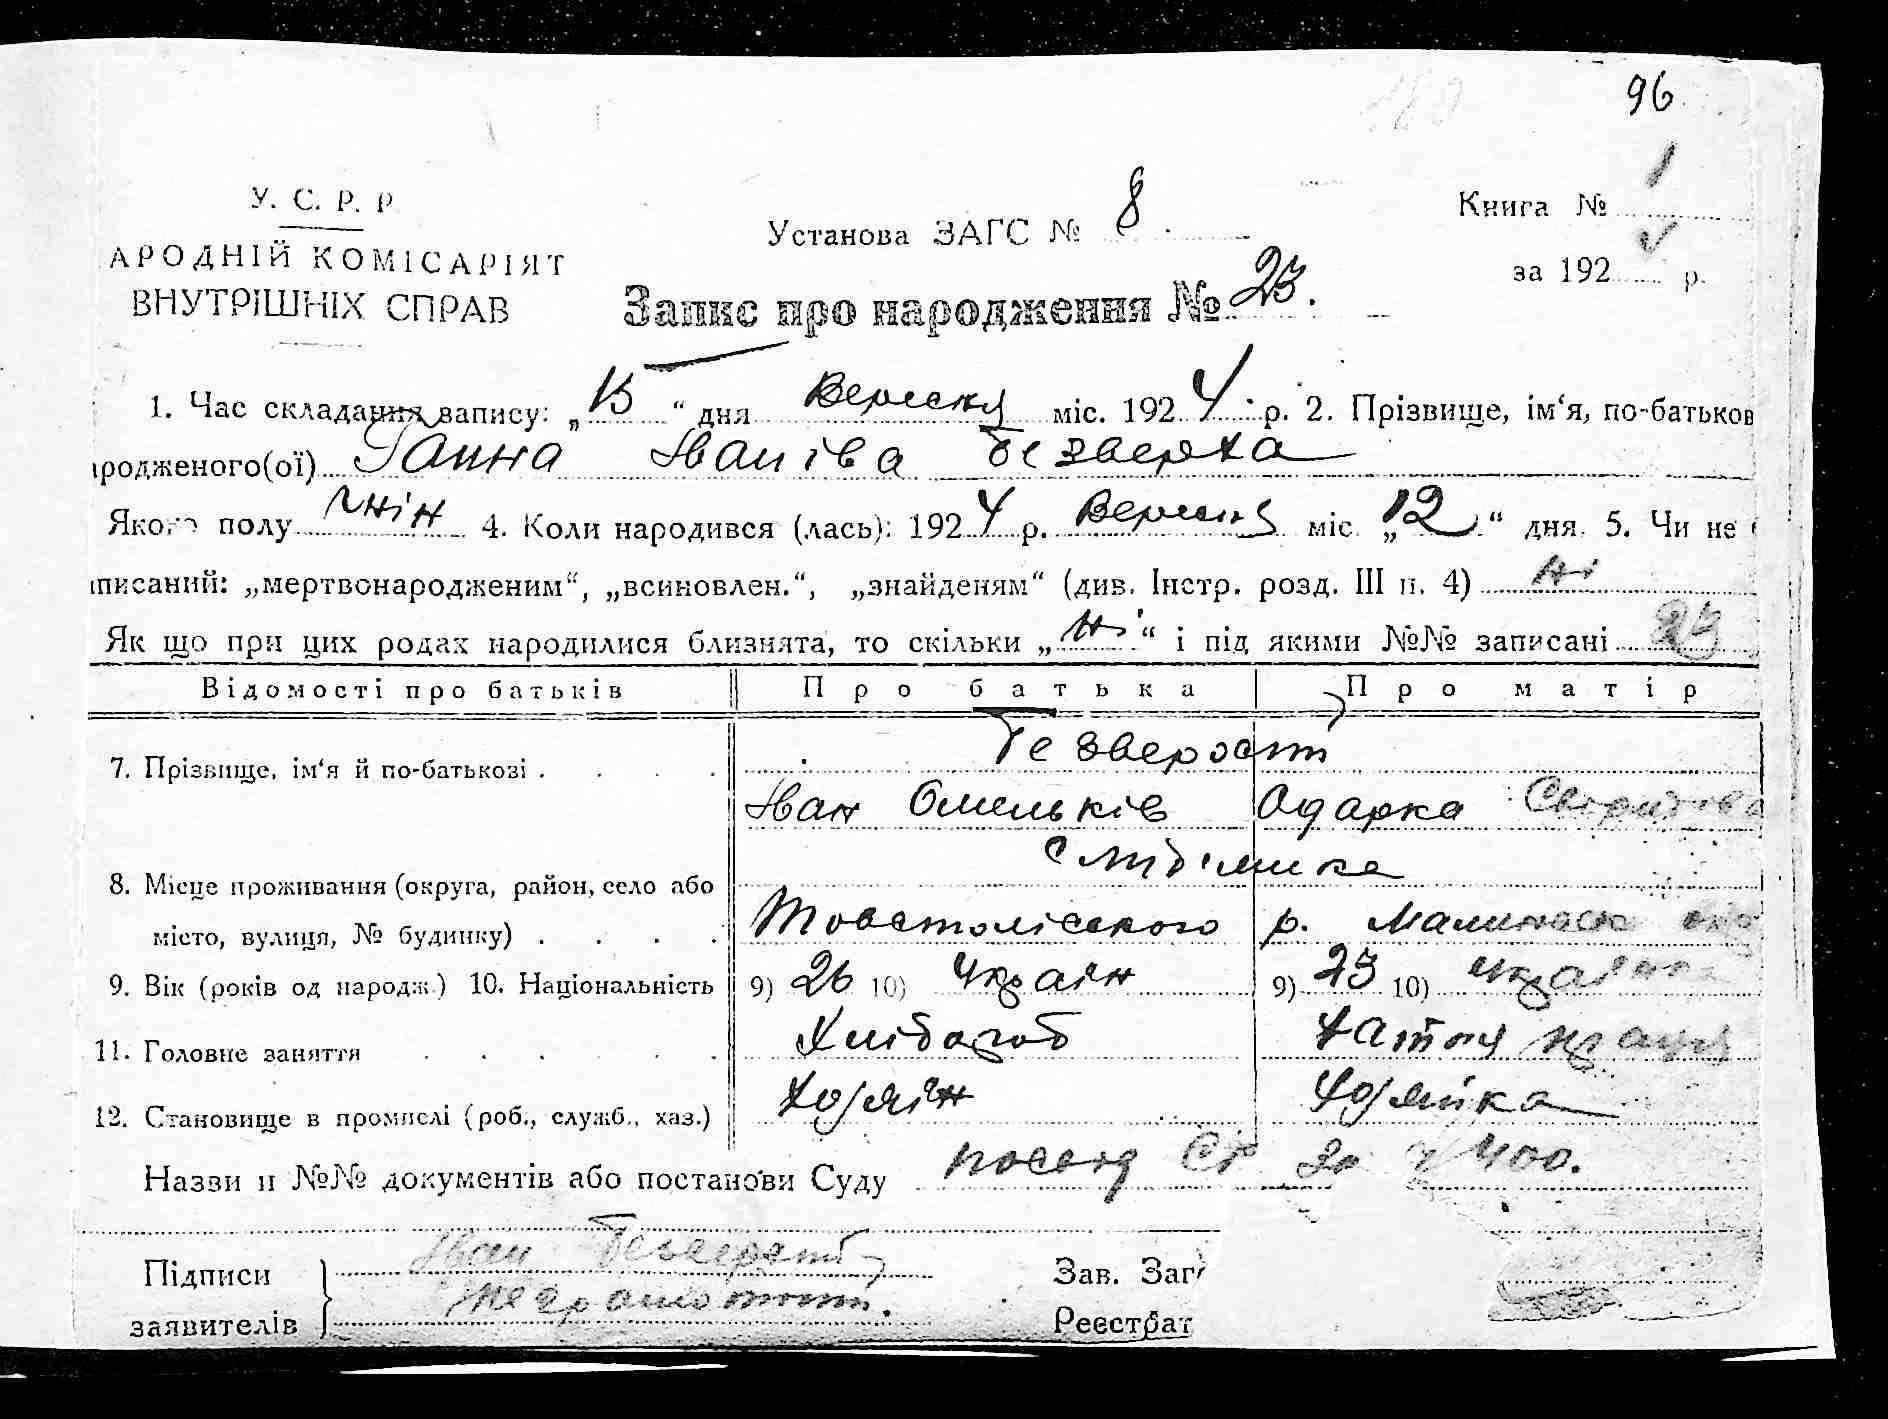 96
У. С. Р. Р
АРОДНІЙ КОМІСАРІЯТ
ВНУТРІШНІХ СПРАВ
Установа ЗАГС № 8
Книга № 1
за 192 р.
Запис про народження № 23.
1. Час складання запису: „13“ дня Вересня міс. 1924 р. 2. Прізвище, ім‘я, по-батьков
ародженого(ої) Ганна Іваніва Безверха
Якого полу жін 4. Коли народився (лась): 1924 р. Вересня міс. „12“ дня. 5. Чи не
писаний: „мертвонародженим“, „всиновлен.“, „знайденям“ (див. Інстр. розд. III п. 4) ні
Як що при цих родах народилися близнята, то скільки „ні“ і під якими №№ записані 23
Відомості про батьків Про батька Про матір
7. Прізвище, ім‘я й по-батькові
Іван Омельків Одарка
8. Місце проживання (округа, район, село або
місто, вулиця, № будинку) Товстоліського р. Малинськ
9. Вік (років од народж.) 10. Національність 9) 26 10) Україн 9) 23 10) Україн
11. Головне заняття Хлібороб Хатня праця
12. Становище в промислі (роб., служб., хаз.) Хозяїн Хозяйка
Назви и №№ документів або постанови Суду посвід 400.
Підписи Іван Зав. Заг
заявителів Реєстрат